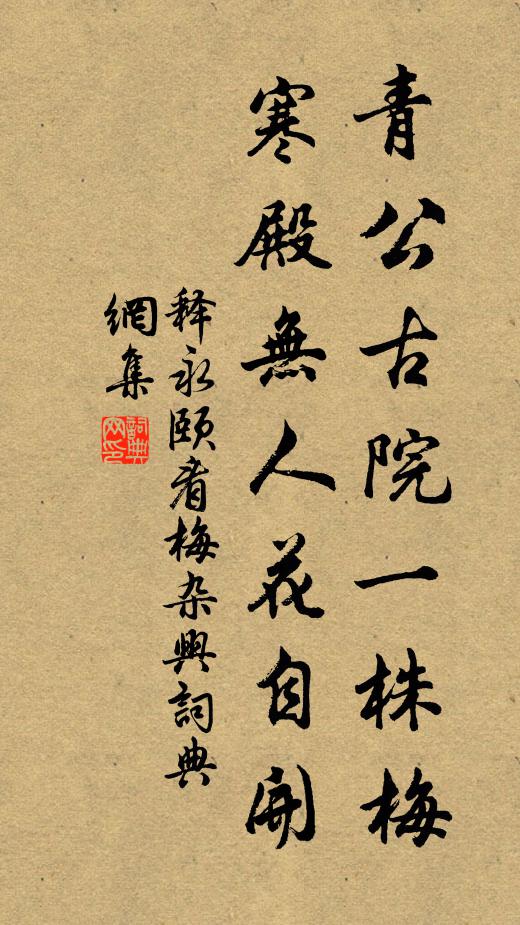 青公古院一株梅
寒殿無人花自開
释永颐看梅杂興詞典
網集
詞典
网印